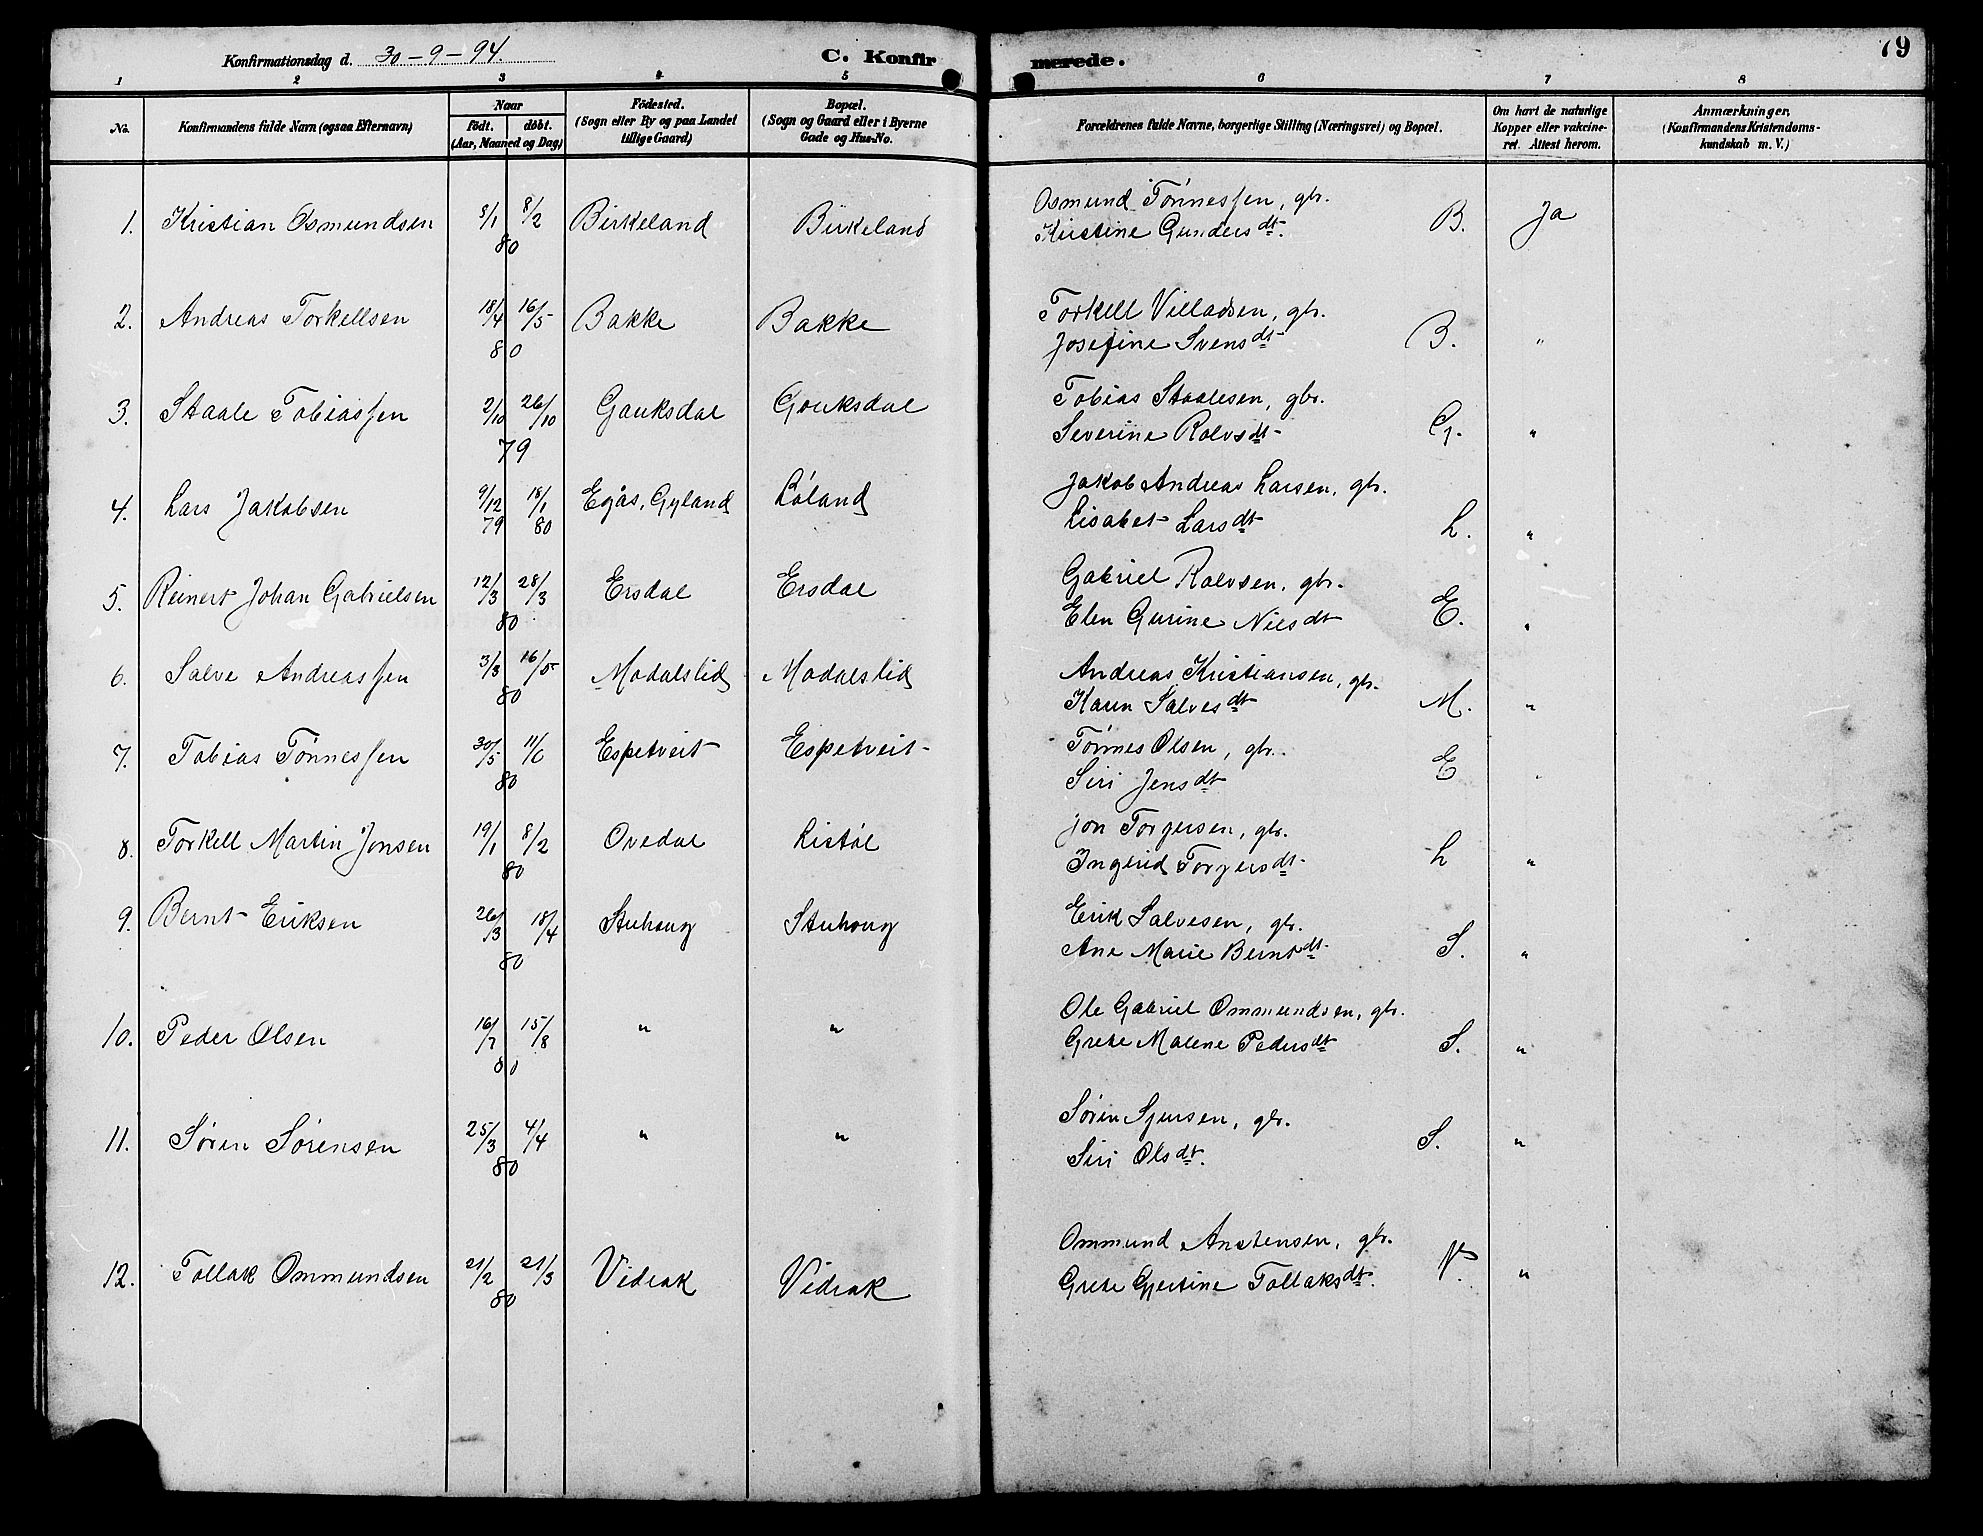 Konfirmationsdag d. 30-9-94.
C. Konfirmerede.
79
1 2 3 4 5 6 7 8
No.
Konfirmandens fulde Navn (ogsaa Efternavn)
Naar
født. døbt.
(Aar, Maaned og Dag)
Fødested.
(Sogn eller By og paa Landet
tillige Gaard)
Bopæl.
(Sogn og Gaard eller i Byerne
Gade og Hus-No.
Forældrenes fulde Navne, borgerlige Stilling (Næringsvei) og Bopæl.
Om havt de naturlige
Kopper eller vakcine-
ret. Attest herom.
Anmærkninger,
(Konfirmandens Kristendoms-
kundskab m. V.)
1. Kristian Osmundsen 8/1 8/2 80 Birkeland Birkeland
Osmund Tønnessen, gbr.
Kristine Gundersdt. B. Ja
2. Andreas Torkellsen 18/4 16/5 80 Bakke Bakke
Torkell Villadsen, gbr.
Josefine Svensdt B. "
3. Staale Tobiassen 2/10 26/10 79 Gauksdal Gouksdal
Tobias Staalesen, gbr.
Severine Rolvsdt G. "
4. Lars Jakobsen 9/12 79 18/1 80 Egås, Gyland Løland
Jakob Andreas Larsen, gbr.
Lisabet Larsdt L. "
5. Reinert Johan Gabrielsen 12/3 28/3 80 Ersdal Ersdal
Gabriel Rolvsen, gbr.
Elen Gurine Nilsdt E. "
6. Salve Andreassen 3/3 16/5 80 Modalslid Modalslid
Andreas Kristiansen, gbr.
Karen Salvesdt M. "
7. Tobias Tønnessen 30/5 11/6 80 Espetveit Espetveit
Tønnes Olsen, gbr.
Siri Jensdt E "
8. Torkell Martin Jonsen 19/1 8/2 80 Ovedal Listøl
Jon Torgersen, gbr.
Ingerid Torgersdt L "
9. Bernt Eriksen 26/3 18/4 80 Stuhoug Stuhoug
Erik Salvesen, gbr.
Ane Marie Berntdt S. "
10. Peder Olsen 16/7 15/8 80 " "
Ole Gabriel Ommundsen, gbr.
Grete Malene Pedersdt S. "
11. Søren Sørensen 25/3 4/4 80 " "
Søren Sjursen, gbr.
Siri Olsdt. S. "
12. Tollak Ommundsen 21/2 21/3 80 Vidrak Vidrak
Ommund Anstensen, gbr.
Grete Gjertine Tollaksdt. V. "